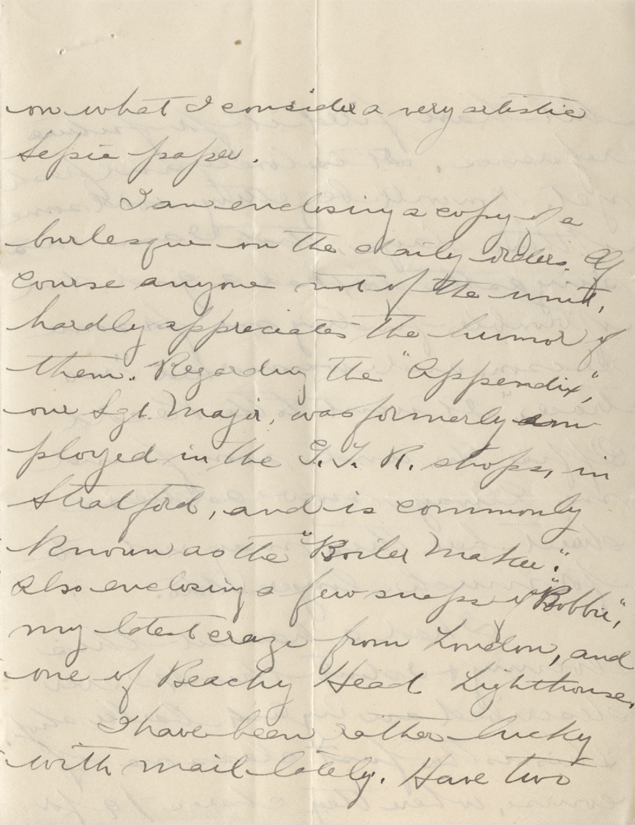 on what I consider a very artistic
sepia paper.
I am enclosing a copy of a
burlesque on the daily orders. Of
course anyone not of the unit,
hardly appreciates the humor of
them. Regarding the "Appendix",
our Sgt. Major, was formerly em
ployed in the G.T.R. shops, in
Stratford, and is commonly
known as the "Boiler Maker".
Also enclosing a few snaps of "Bobbie",
my latest craze from London, and
one of Beachy Head Lighthouse.
I have been rather lucky
with mail lately. Have two